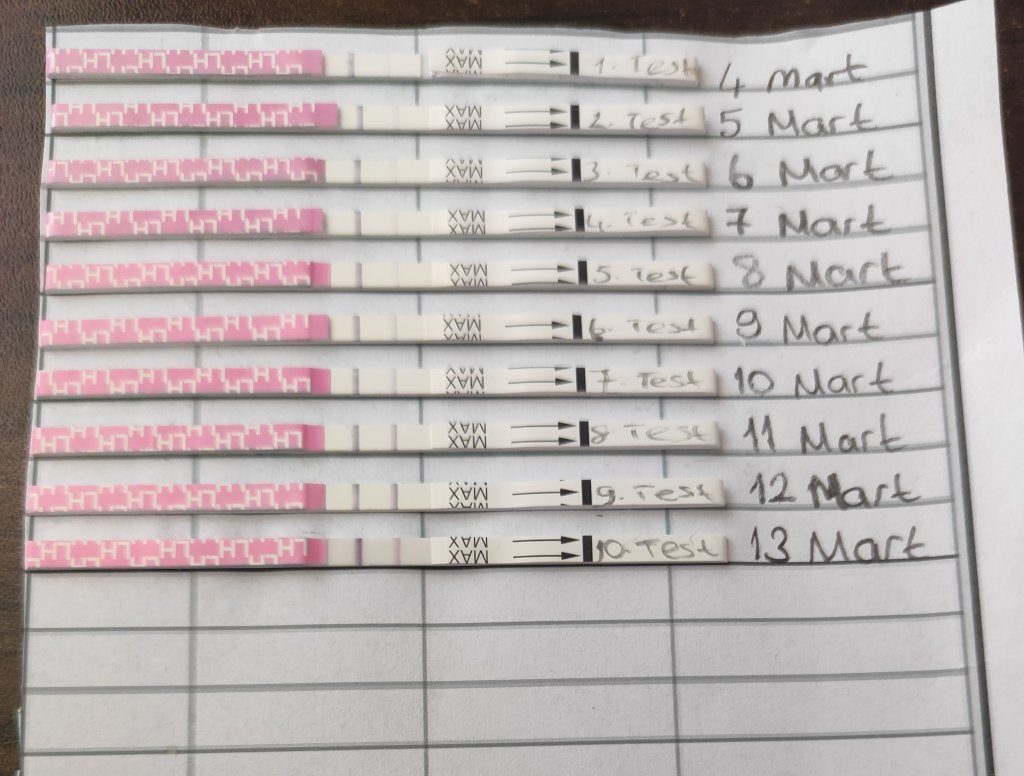 HL HL HL HL MAX 1. Test 4 Mart
HL HL HL HL MAX 2. Test 5 Mart
HL HL HL HL MAX 3. Test 6 Mart
HL HL HL HL MAX 4. Test 7 Mart
HL HL HL HL MAX 5. Test 8 Mart
HL HL HL HL MAX 6. Test 9 Mart
HL HL HL HL MAX 7. Test 10 Mart
HL HL HL HL MAX 8 Test 11 Mart
HL HL HL HL MAX 9. Test 12 Mart
HL HL HL HL MAX 10. Test 13 Mart